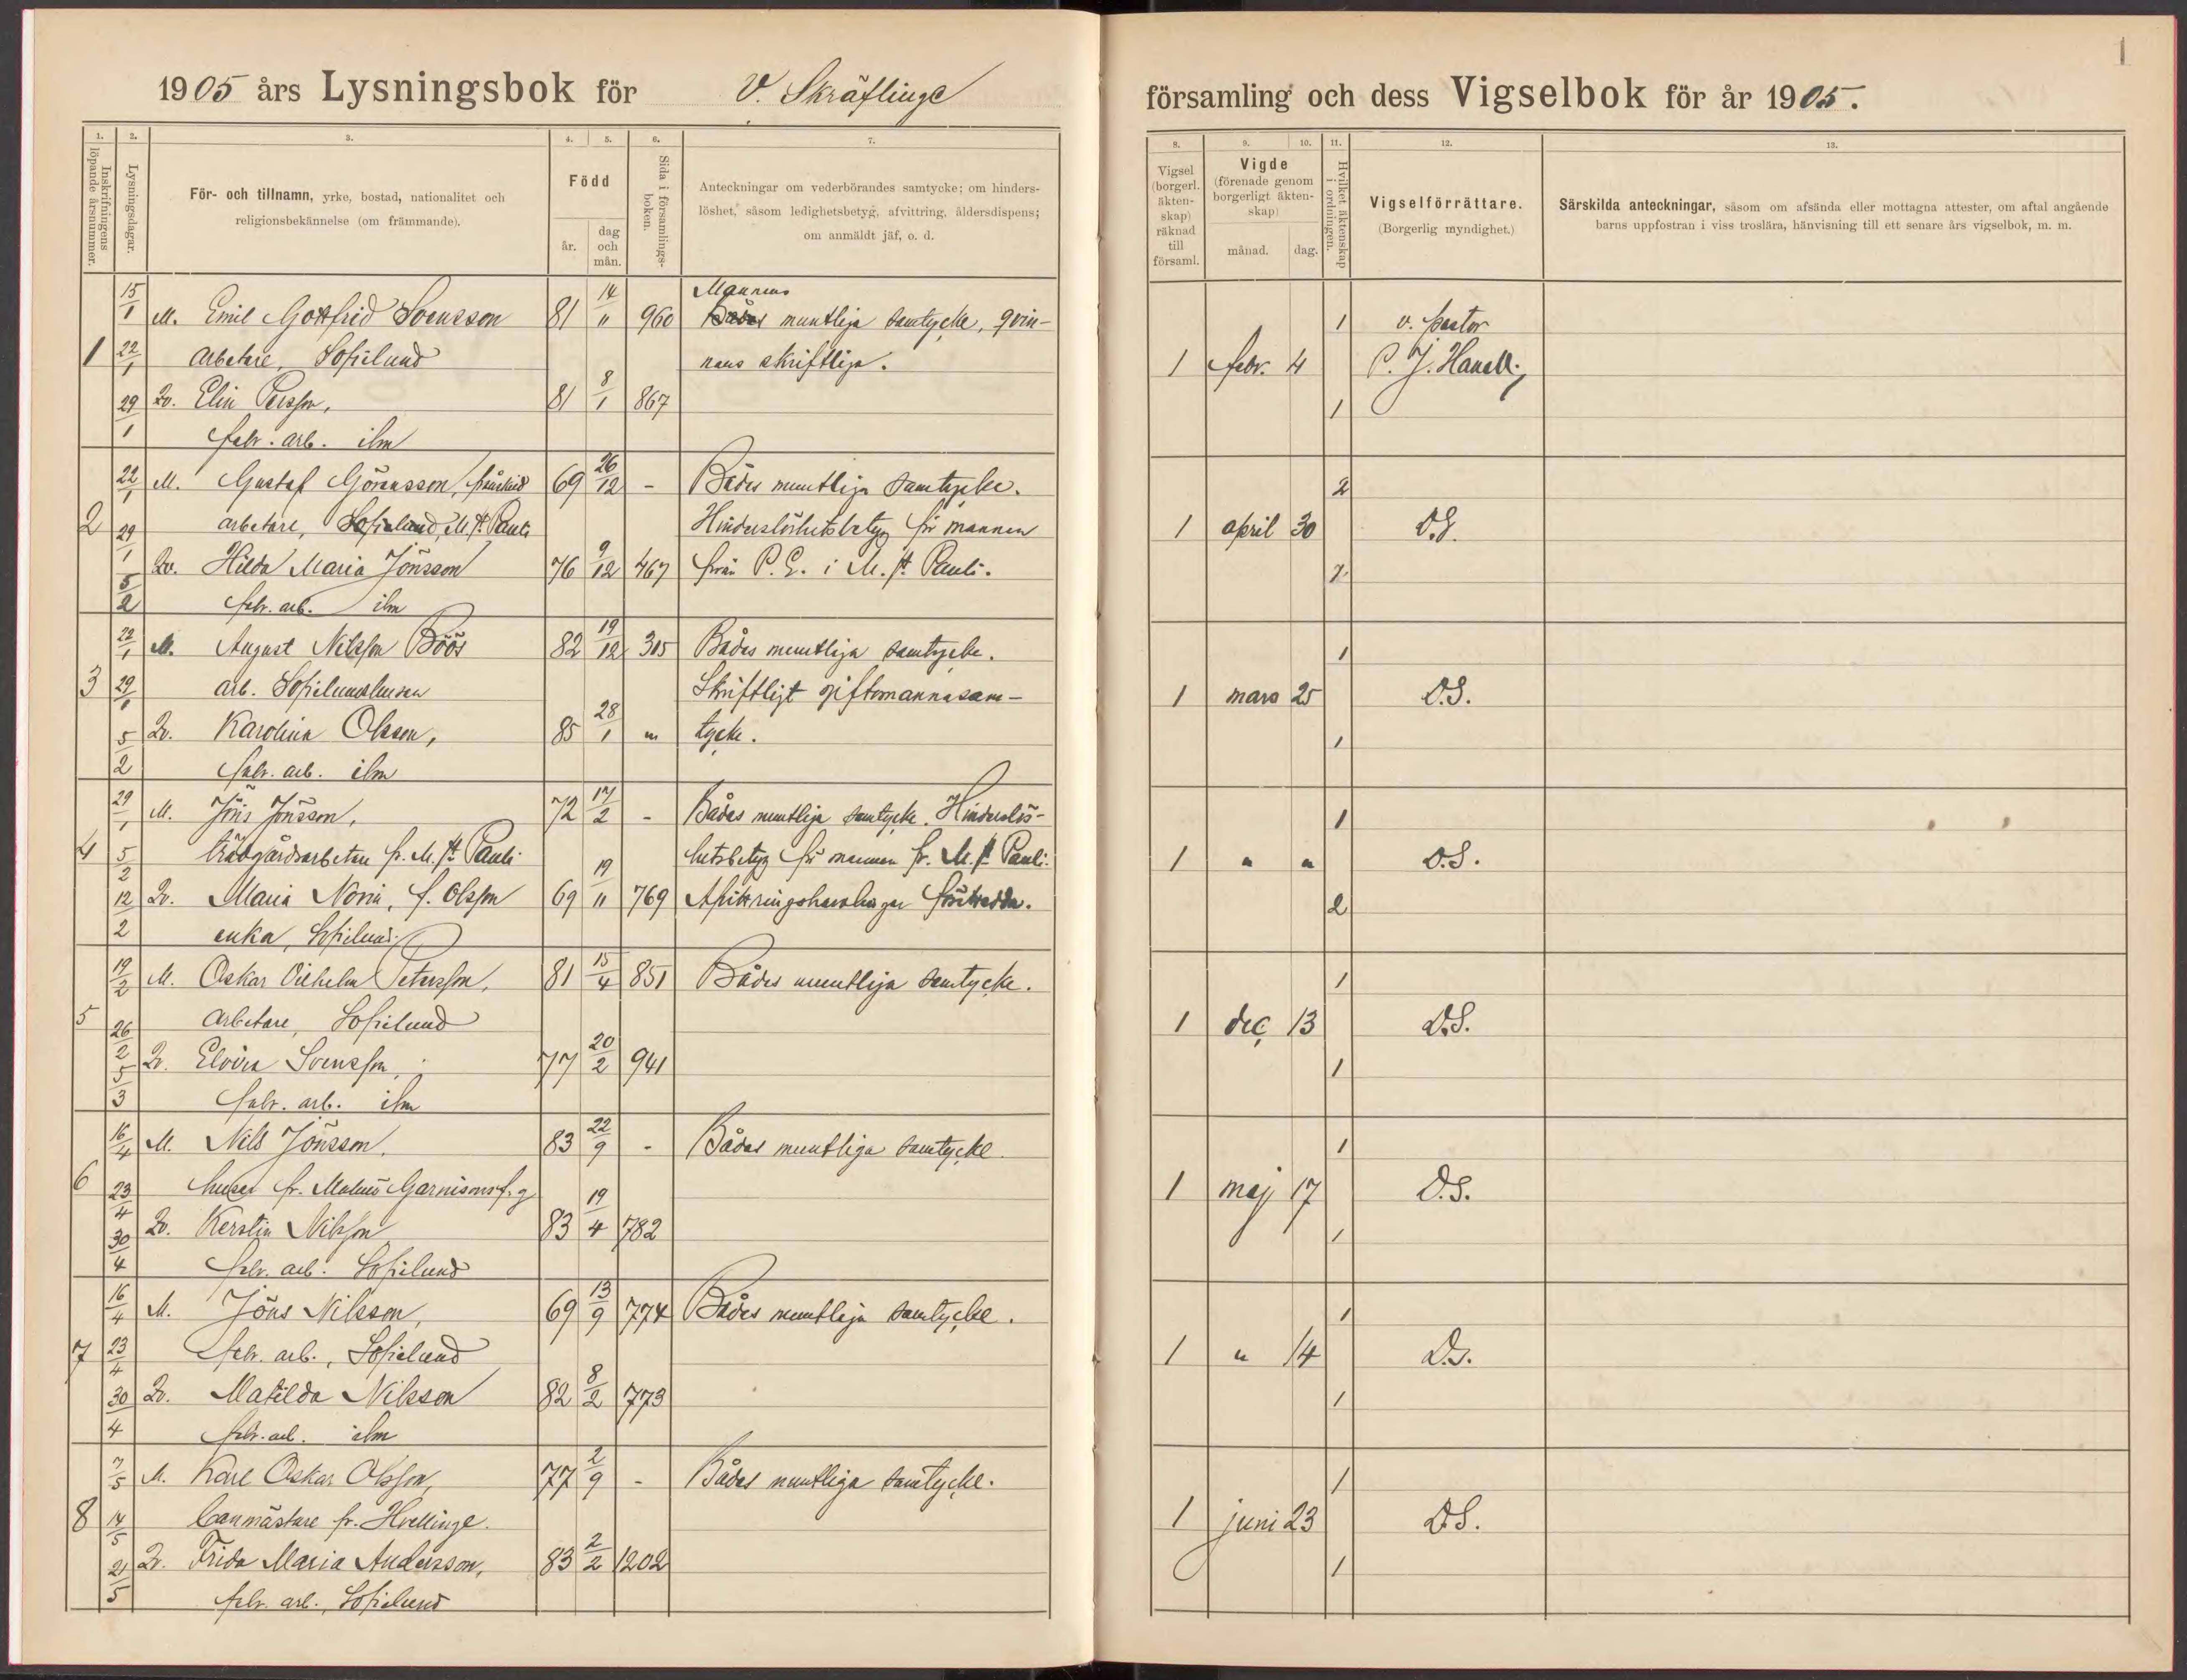 1905 års Lysningsbok för V. Skräflinge
1. 2. 3. 4. 5. 6. 7.
Inskrifningens löpande årsnummer.
Lysningsdagar.
För- och tillnamn, yrke, bostad, nationalitet och
religionsbekännelse (om främmande).
Född
år.
dag och mån.
Sida i församlingsboken.
Anteckningar om vederbörandes samtycke; om hinders-
löshet, såsom ledighetsbetyg, afvittring, åldersdispens;
om anmäldt jäf, o. d.
Mannens
15/1 M. Emil Gottfrid Svensson 81 14/11 960 muntliga samtycke, qvin-
1 22/1 arbetare, Sofielund nans skriftliga.
29/1 Qv. Elin Persson, 81 8/1 867
fabr. arb. ibm
22/1 M. Gustaf Göransson, frånskild 69 26/12 - Bådas muntliga samtycke.
2 29/1 arbetare, Sofielund, M. St. Pauli Hinderslöshetsbetyg för mannen
5/2 Qv. Hilda Maria Jönsson 76 9/12 467 från P. E. i M. St. Pauli.
fabr. arb. ibm
22/1 M. August Nilsson Böös 82 19/12 305 Bådas muntliga samtycke.
3 29/1 arb. Sofielundshusen Skriftligt giftomannasam-
5/2 Qv. Karolina Olsson, 85 28/1 " tycke.
fabr. arb. ibm
29/1 M. Jöns Jönsson, 72 17/2 - Bådas muntliga samtycke. Hinderslös-
4 5/2 trädgårdsarbetare fr. M. St. Pauli hetsbetyg för mannen fr. M. St. Pauli.
12/2 Qv. Maria Norin, f. Olsson 69 19/11 769 Afvittringshandlingar företedda.
enka, Sofielund
19/2 M. Oskar Vilhelm Petersson, 81 15/4 851 Bådas muntliga samtycke.
5 26/2 arbetare, Sofielund
5/3 Qv. Elvira Svensson, 77 20/2 941
fabr. arb. ibm
16/4 M. Nils Jönsson, 83 22/9 - Bådas muntliga samtycke.
6 23/4 husar fr. Malmö Garnisonsf.g
30/4 Qv. Kerstin Nilsson 83 19/4 782
fabr. arb. Sofielund
16/4 M. Jöns Nilsson, 69 13/9 774 Bådas muntliga samtycke.
7 23/4 fabr. arb., Sofielund
30/4 Qv. Matilda Nilsson 82 8/2 773
fabr. arb. ibm
7/5 M. Karl Oskar Olsson, 77 2/9 - Bådas muntliga samtycke.
8 14/5 banmästare fr. Hvellinge.
21/5 Qv. Frida Maria Andersson, 83 2/2 1202
fabr. arb., Sofielund
1
församling och dess Vigselbok för år 1905.
8. 9. 10. 11. 12. 13.
Vigsel (borgerl. äkten-skap) räknad till församl.
Vigde
(förenade genom borgerligt äkten-skap)
månad. dag.
Hvilket äktenskap i ordningen.
Vigselförrättare.
(Borgerlig myndighet.)
Särskilda anteckningar, såsom om afsända eller mottagna attester, om aftal angående
barns uppfostran i viss troslära, hänvisning till ett senare års vigselbok, m. m.
1 v. pastor
1 febr. 4 P. J. Hanell.
1
2
1 april 30 D.S.
1
1 mars 25 D.S.
1
1
1 " " D.S.
2
1
1 dec. 13 D.S.
1
1
1 maj 17 D.S.
1
1
1 " 14 D.S.
1
1
1 juni 23 D.S.
1